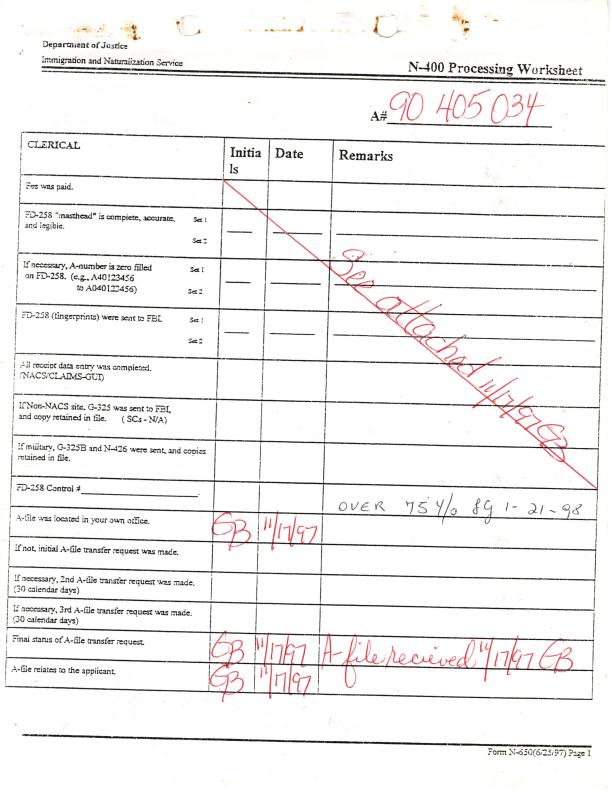 Department of Justice
Immigration and Naturalization Service
N-400 Processing Worksheet
A# 90 405 034
CLERICAL
Initia
ls
Date
Remarks
Fee was paid.
FD-258 "masthead" is complete, accurate, Set 1
and legible.
Set 2
If necessary, A-number is zero filled Set 1
on FD-258. (e.g., A40123456
to A040123456) Set 2
FD-258 (fingerprints) were sent to FBI. Set 1
Set 2
See attached 11/17/97 GB
All receipt data entry was completed.
(NACS/CLAIMS-GUI)
If Non-NACS site, G-325 was sent to FBI,
and copy retained in file. ( SCs - N/A)
If military, G-325B and N-426 were sent, and copies
retained in file.
FD-258 Control #
OVER 75 Y/o 8g 1-21-98
A-file was located in your own office. GB 11/17/97
If not, initial A-file transfer request was made.
If necessary, 2nd A-file transfer request was made.
(30 calendar days)
If necessary, 3rd A-file transfer request was made.
(30 calendar days)
Final status of A-file transfer request. GB 11/17/97 A-file recieved 11/17/97 GB
A-file relates to the applicant. GB 11/17/97
Form N-650(6/25/97) Page 1